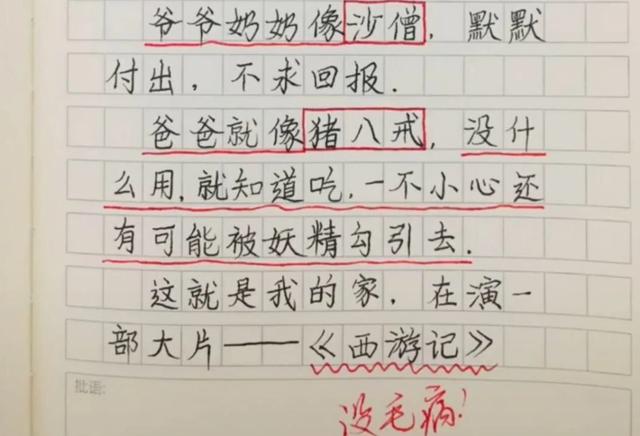 爷爷奶奶像沙僧，默默
付出，不求回报．
爸爸就像猪八戒，没什
么用，就知道吃，一不小心还
有可能被妖精勾引去．
这就是我的家，在演一
部大片——《西游记》
批语：
没毛病！